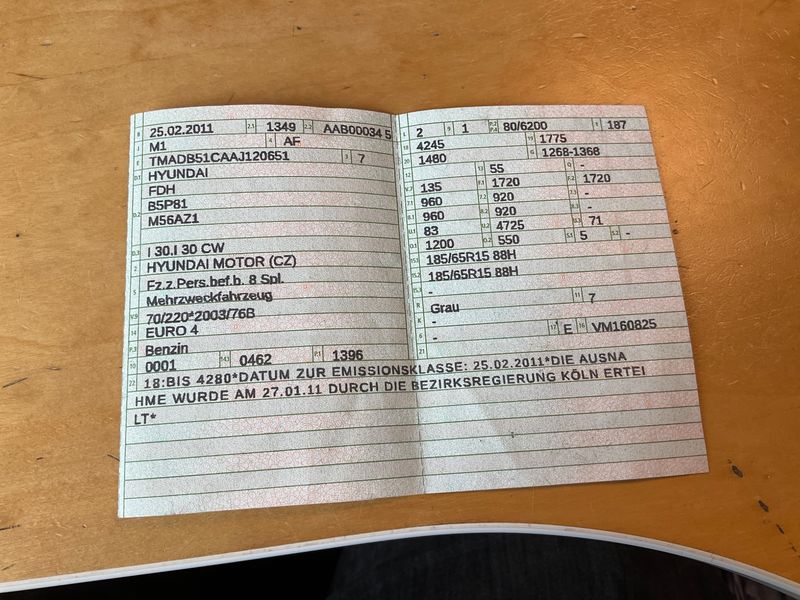 B 25.02.2011 2.1 1349 2.2 AAB00034 5
J M1 4 AF
E TMADB51CAAJ120651 3 7
D.1 HYUNDAI
FDH
D.2 B5P81
M56AZ1
D.3 I 30.I 30 CW
2 HYUNDAI MOTOR (CZ)
5 Fz.z.Pers.bef.b. 8 Spl.
Mehrzweckfahrzeug
V.9 70/220*2003/76B
14 EURO 4
P.3 Benzin
10 0001 14.1 0462 P.1 1396
L 2 9 1 P.2 P.4 80/6200 T 187
18 4245 19 1775
20 1480 G 1268-1368
12 - 13 55 Q -
V.7 135 F.1 1720 F.2 1720
7.1 960 7.2 920 7.3 -
8.1 960 8.2 920 8.3 -
U.1 83 U.2 4725 U.3 71
O.1 1200 O.2 550 S.1 5 S.2 -
15.1 185/65R15 88H
15.2 185/65R15 88H
15.3 -
R Grau 11 7
K -
6 - 17 E 16 VM160825
21
22 18:BIS 4280*DATUM ZUR EMISSIONSKLASSE: 25.02.2011*DIE AUSNA
HME WURDE AM 27.01.11 DURCH DIE BEZIRKSREGIERUNG KÖLN ERTEI
LT*